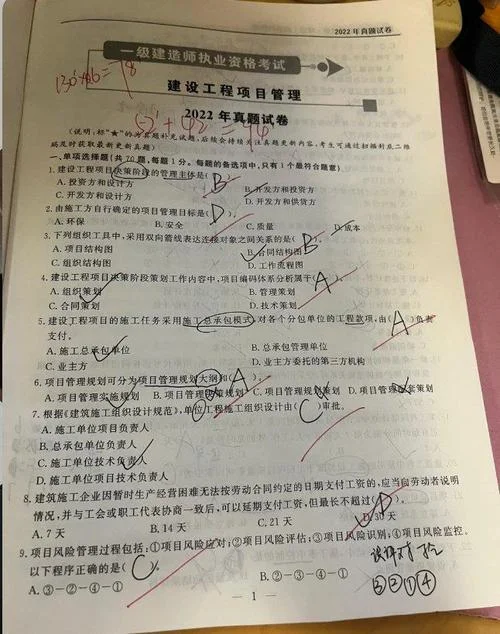 2022年真题试卷
一级建造师执业资格考试
建设工程项目管理
2022年真题试卷
(说明:标"★"的为真题补充试题,后续会持续关注真题更新内容,考生可通过扫描封底二维
码及时获取最新更新真题)
一、单项选择题(共70题,每题1分。每题的备选项中,只有1个最符合题意)
1.建设工程项目决策阶段的管理主体是( B )。
A.投资方和设计方 B.开发方和投资方
C.开发方和设计方 D.开发方和供货方
2.由施工方自行确定的项目管理目标是( D )。
A.环保 B.安全 C.质量 D.成本
3.下列组织工具中,采用双向箭线表达连接对象之间关系的是( B )。
A.项目结构图 B.合同结构图
C.组织结构图 D.工作流程图
4.建设工程项目决策阶段策划工作内容中,项目编码体系分析属于( A )。
A.组织策划 B.管理策划
C.合同策划 D.技术策划
5.建设工程项目的施工任务采用施工总承包模式,对各个分包单位的工程款项,由( A )负责
支付。
A.施工总承包单位 B.总承包管理单位
C.业主方 D.业主方委托的第三方机构
6.项目管理规划可分为项目管理规划大纲和( A )。
A.项目管理实施规划 B.项目管理 规划 C.项目管理规划策划 D.项目管理 策划
7.根据《建筑施工组织设计规范》,单位工程施工组织设计由( C )审批。
A.施工单位项目负责人
B.总承包单位负责人
C.施工单位技术负责人
D.施工单位项目技术负责人
8.建筑施工企业因暂时生产经营困难无法按劳动合同约定的日期支付工资的,应当向劳动者说明
情况,并与工会或职工代表协商一致后,可以延期支付工资,但最长不超过( D )。
A.7天 B.14天 C.21天 D.30天
9.项目风险管理过程包括:①项目风险应对;②项目风险评估;③项目风险识别;④项目风险监控。
以下程序正确的是( C )。
③②①④
A.③-②-④-① B.②-③-④-①
— 1 —